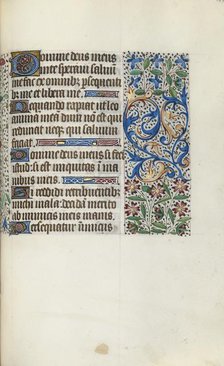 Domine deus meus
in te speraui saluum
me fac ex omnibus psequenti
bus me et libera me
Nequando rapiat ut leo
animam meā dum non est qui
redimat neqȝ qui saluum
faciat
Domine deus meus si feci
istud si est iniquitas ī ma
nibus meis
Si reddidi retribuentibȝ
michi mala decidā merito
ab inimicis meis inanis
Persequatur inimicus